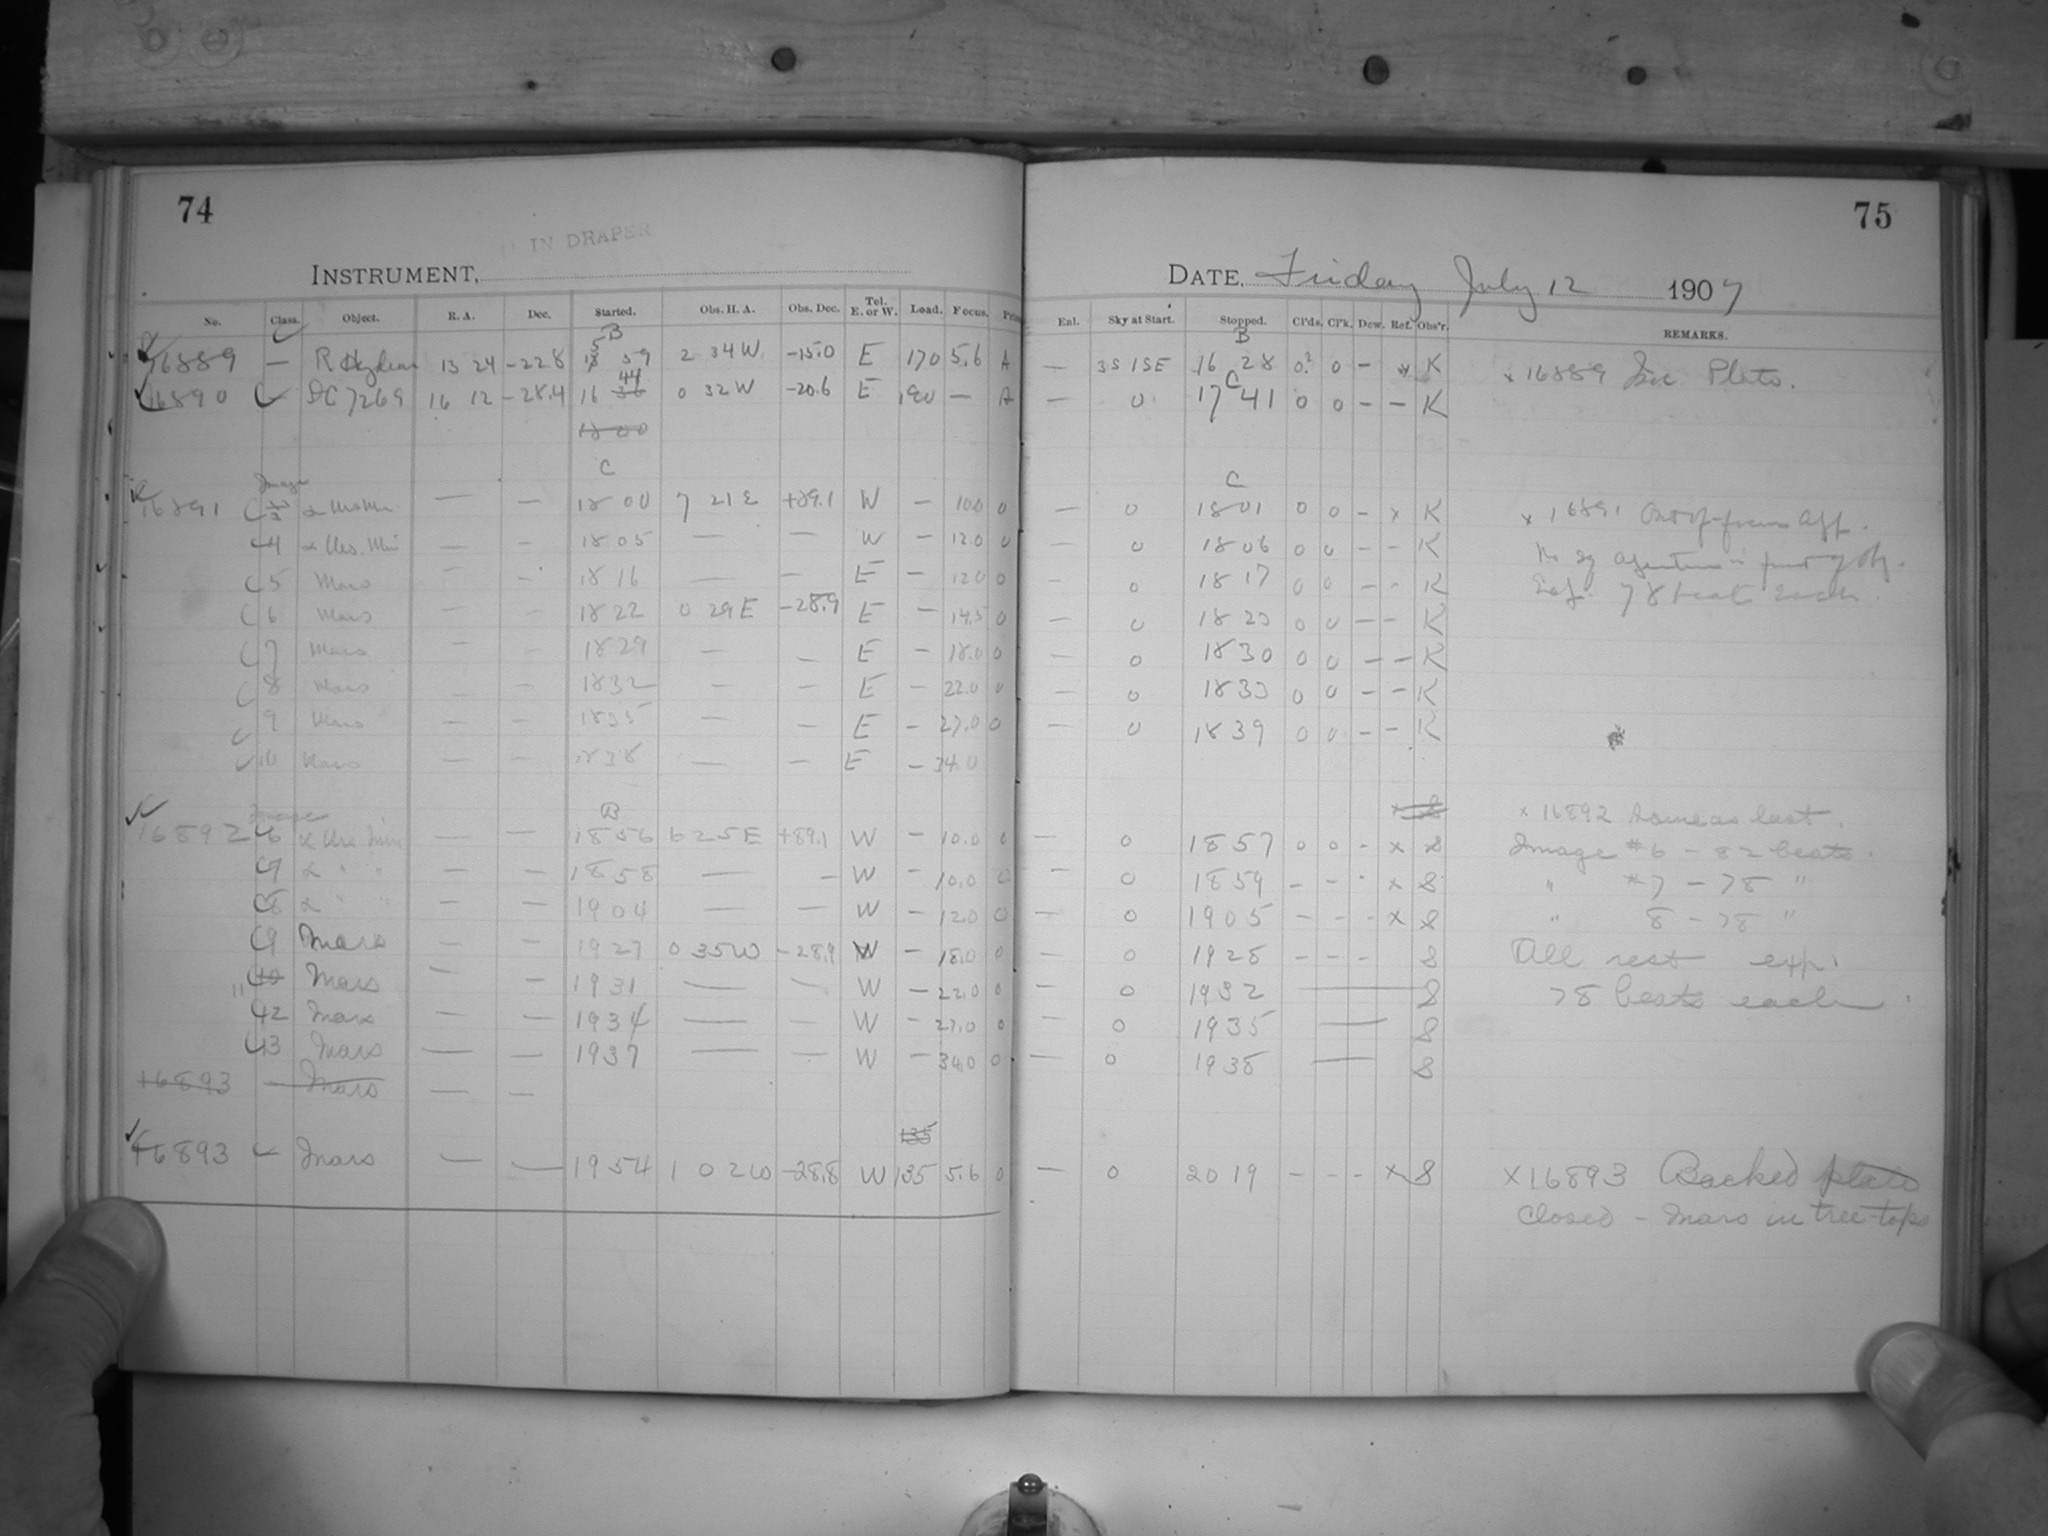 74
IN DRAPER
INSTRUMENT,
No. Class. Object. R. A. Dec. Started. Obs. H. A. Obs. Dec. Tel. E. or W. Load. Focus.
B
16889 — R Hydrae 13 24 -22.8 59 2 34 W -15.0 E 170 5.6 A
44
16890 C DC 7269 16 12 -28.4 16 36 0 32 W -20.6 E 190 — A
18 00
C
Image
16891 C 3 — — 18 00 7 21 E +89.1 W — 10.0 0
C 4 α Urs. Min — — 18 05 — — W — 12.0 0
C 5 Mars — — 18 16 — — E — 12.0 0
C 6 Mars — — 18 22 0 29 E -28.9 E — 14.5 0
C 7 Mars — — 18 29 — — E — 18.0 0
C 8 Mars — — 18 32 — — E — 22.0 0
C 9 Mars — — 18 35 — — E — 27.0 0
C 10 Mars — — 18 38 — — E — 34.0
B
Image
16892 C 6 α Urs Min — — 18 56 6 25 E +89.1 W — 10.0 0
C 7 α " " — — 18 58 — — W — 10.0 0
C 8 α " " — — 19 04 — — W — 12.0 0
C 9 Mars — — 19 27 0 35 W -28.9 W — 18.0 0
11 C 10 Mars — — 19 31 — — W — 22.0 0
C 12 Mars — — 19 34 — — W — 27.0 0
C 13 Mars — — 19 37 — — W — 34.0 0
16893 — Mars — —
135
16893 C Mars — — 19 54 1 02 W -28.8 W 135 5.6 0
75
DATE, Friday July 12 1907
Enl. Sky at Start. Stopped. Cl'ds. Cl'k. Dew. Ref. Obs'r. REMARKS.
B
— 3S 1SE 16 28 0? 0 — x K x 16889
C
— 0 17 41 0 0 — — K
C
— 0 18 01 0 0 — x K x 16891 Out of focus
— 0 18 06 0 0 — — K
— 0 18 17 0 0 — — K 78 beats each
— 0 18 23 0 0 — — K
— 0 18 30 0 0 — — K
— 0 18 33 0 0 — — K
— 0 18 39 0 0 — — K
x S x 16892 Same as last.
— 0 18 57 0 0 - x S Image #6 - 82 beats.
— 0 18 59 - - - x S " #7 - 78 "
— 0 19 05 - - - x S " 8 - 78 "
— 0 19 28 - - - S All rest exp.
— 0 19 32 — S 78 beats each.
— 0 19 35 — S
— 0 19 38 — S
— 0 20 19 - - - x S x 16893 Backed plate
Closed - Mars in tree-tops